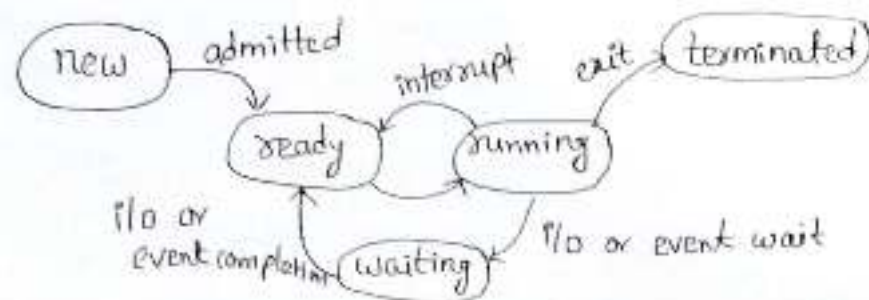 new
admitted
interrupt
exit
terminated
ready
running
i/o or
event completion
waiting
i/o or event wait